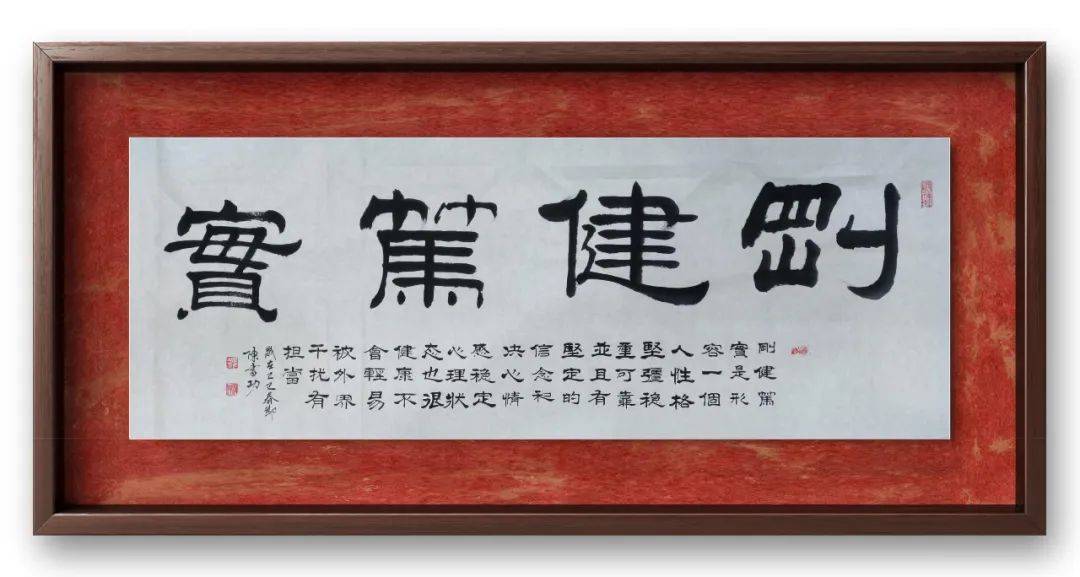 剛健篤實
剛健篤
實是形
容一個
人性格
堅彊穩
重可靠
並且有
堅定的
信念和
決心情
感穩定
心理狀
态也很
健康不
會輕易
被外界
干扰有
担當
歲在乙巳春節
陳書功